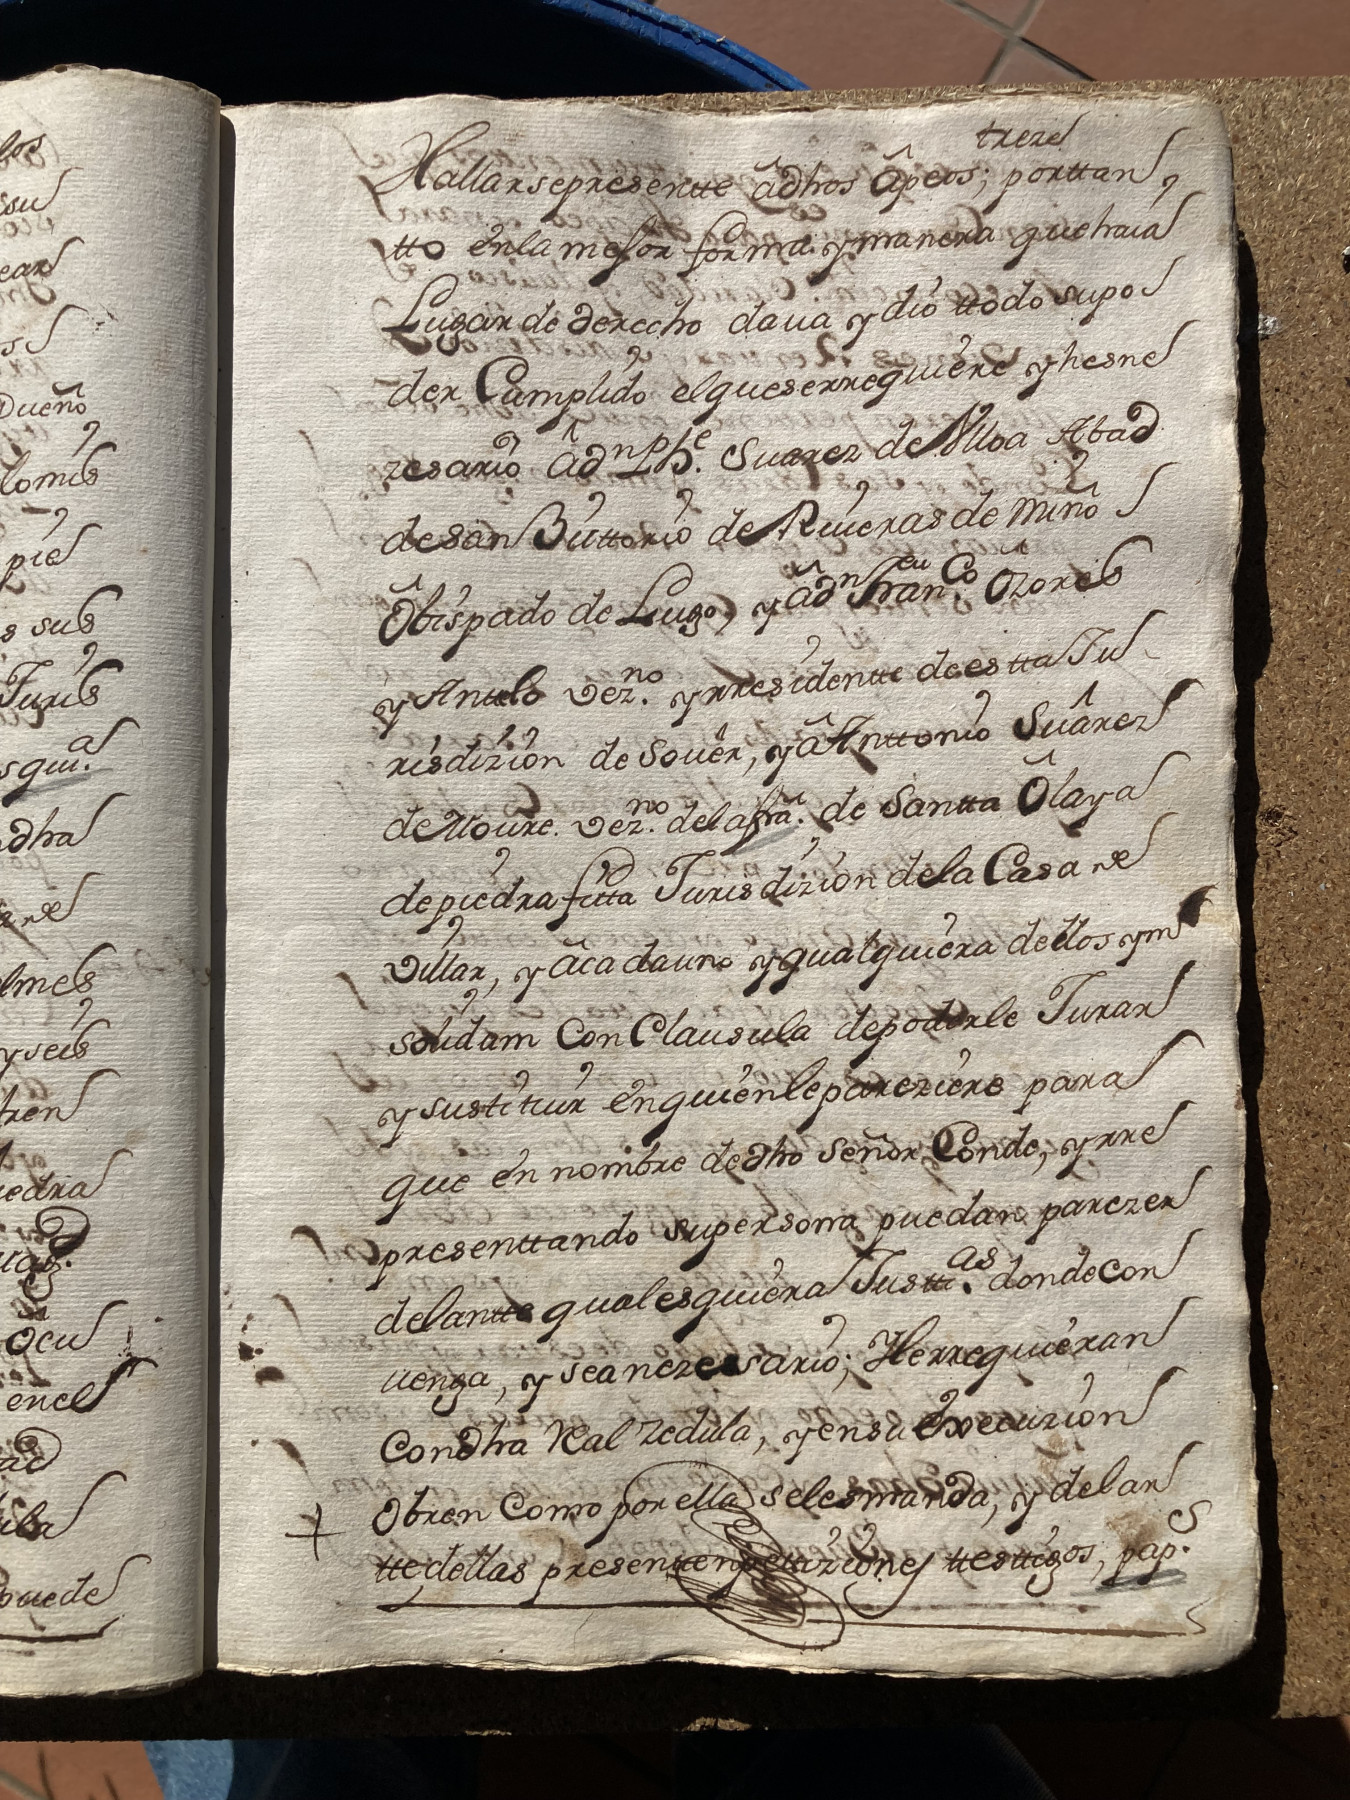 los
su
ear
s
Dueño
lomis
pie
s sus
Turis
squi.ª
dha
lmes
y seis
tren
iedra
ocu
enel
puede
treze
Hallarse presentte â dhos âpeos; porttan
tto en la mejor forma y manera que haia
Lugar de derecho daua y dio ttodo supo
der Cumplido el que se rrequiere y hesne
zesario â dn Phe. Suarez de Ulloa Abad
de san Bittorio de Riueras de Miño
Ôbispado de Lugo, y â dn Fran.co Ozores
y Anttelo vez.no y rresidentte de estta Ju
risdizion de Souer, y â Anttonio Suârez
de Moure. vez.no de la fra. de Santta Ôlaya
de piedra fitta Jurisdizion de la Casa de
Villar, y â cada uno y qualquiera dellos ym
solidam Con Clausula de poderle Jurar
y sustituir en quien le pareziere para
que en nombre de dho señor Conde, y rre
presenttando su persona puedan parezer
delantte qualesquiera Justt.as donde con
uenga, y sea nezesario; He rrequieran
Con dha Real Zedula, y en su execuzion
Obren Como por ella se les manda, y delan
tte dellas presentten pettiziones ttesttigos, pap.s